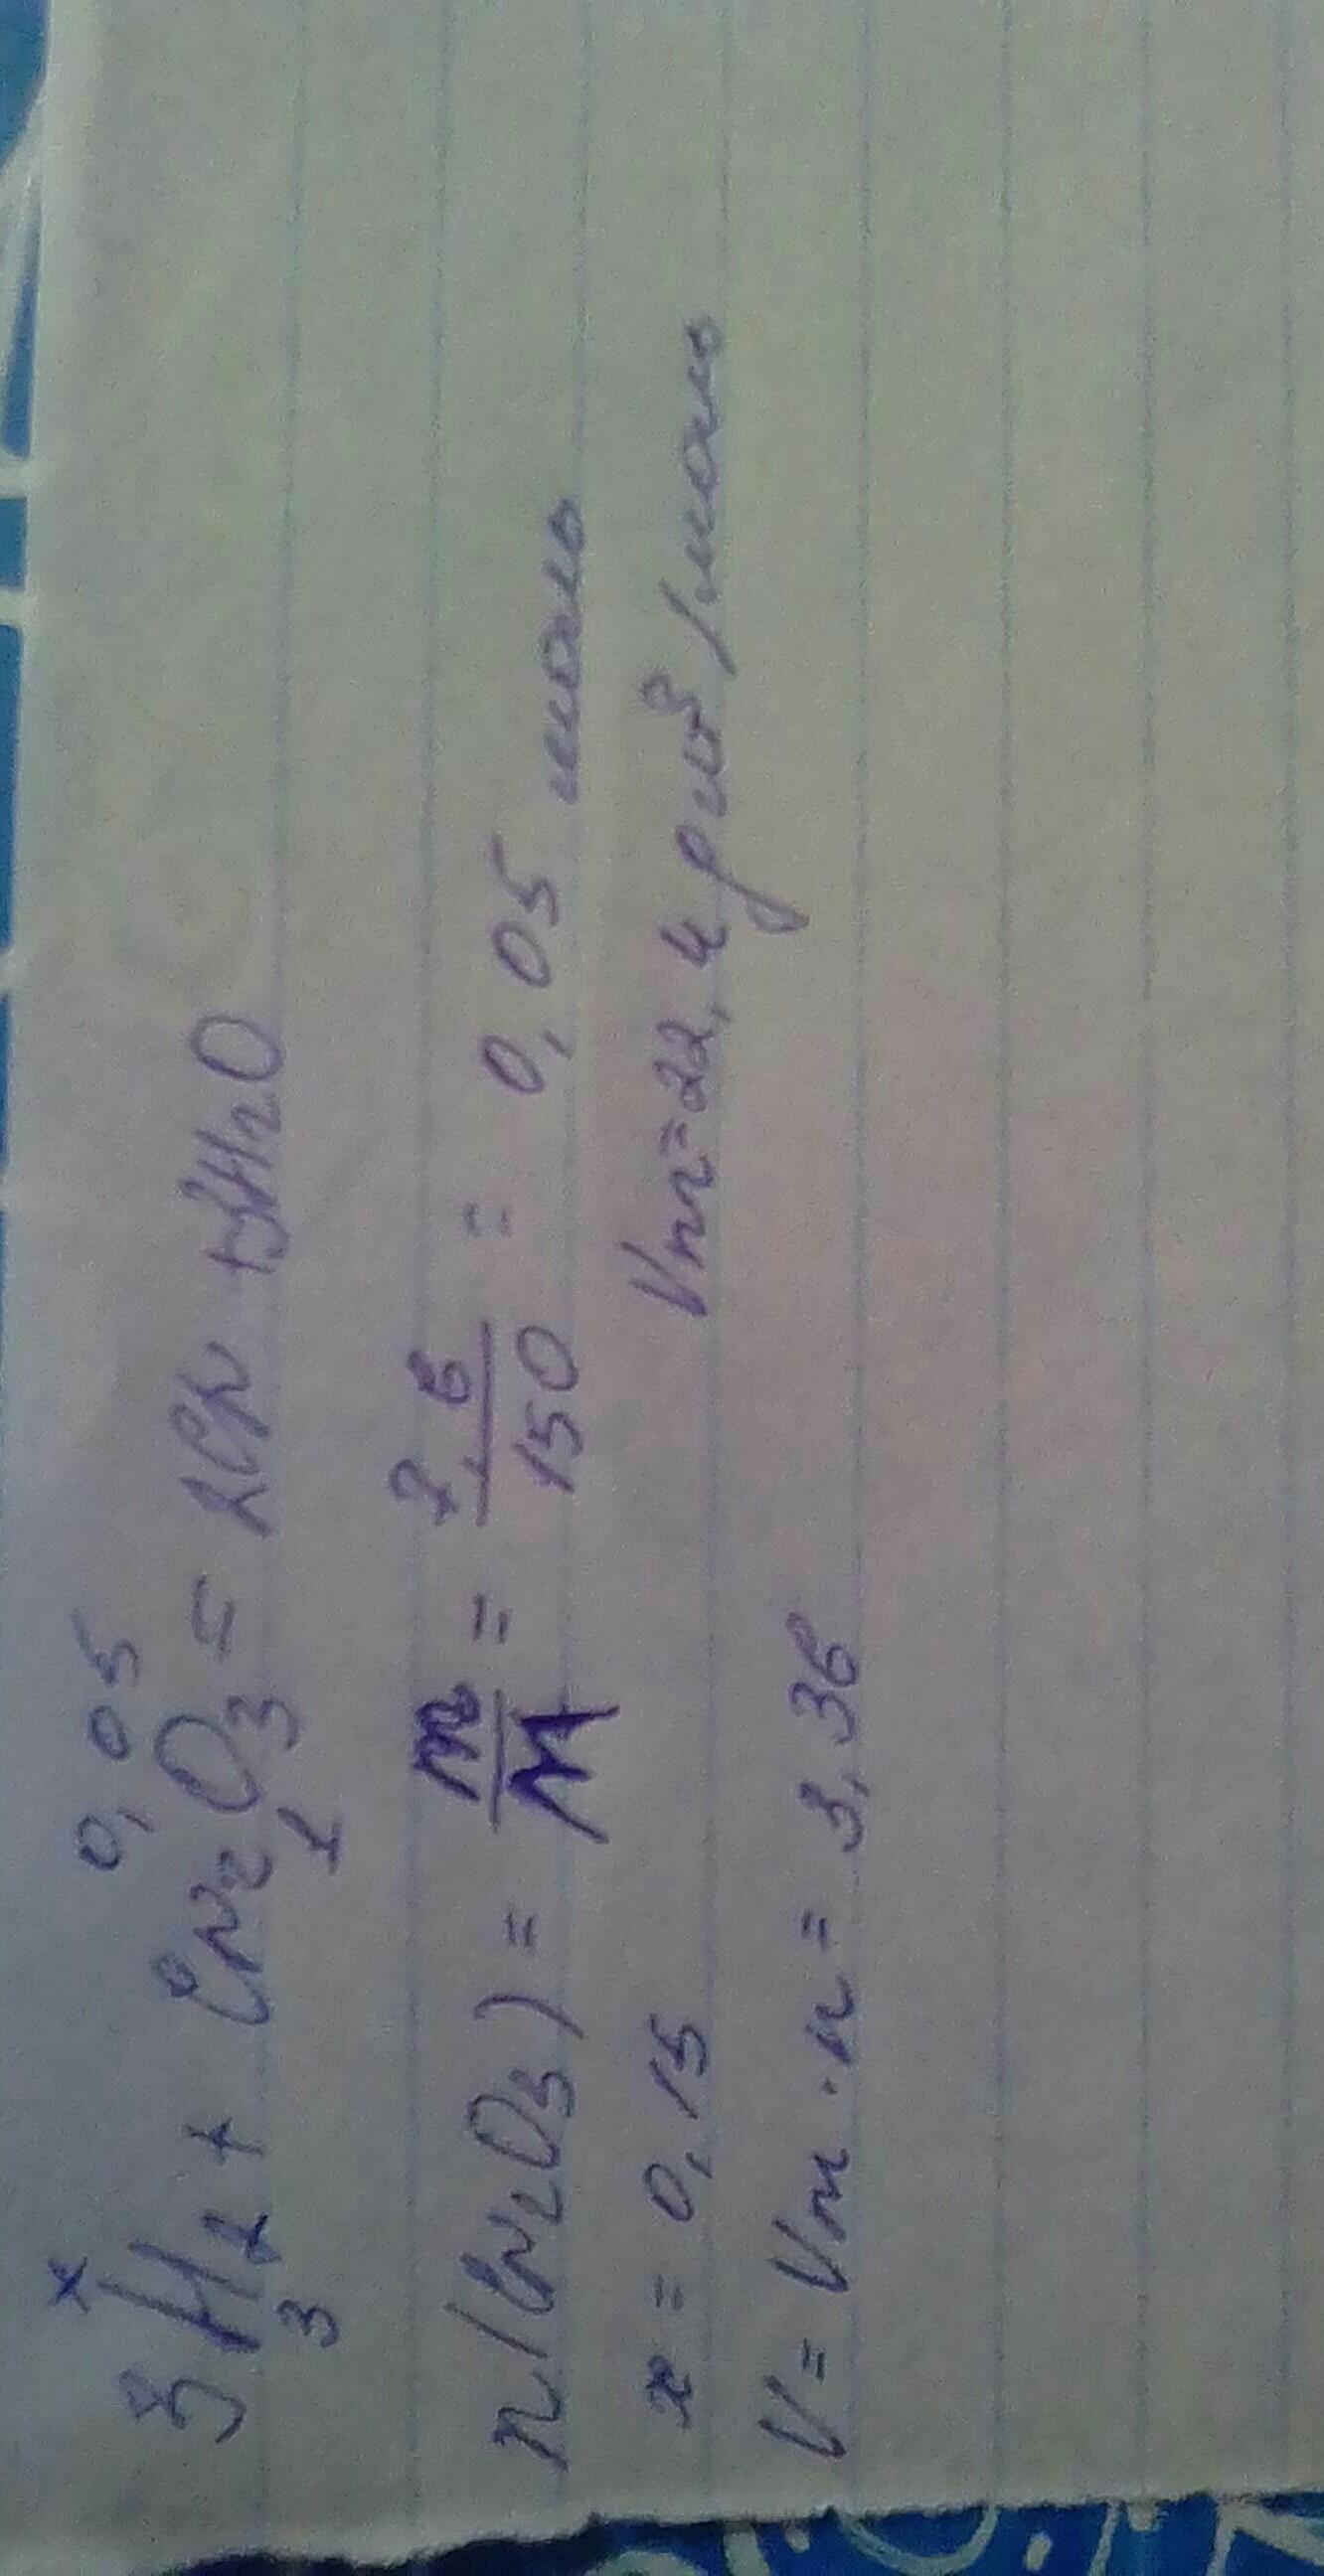 x 0,05
3H2 + Cr2O3 = 2Cr + 3H2O
3 1
n(Cr2O3) = m/M = 7,6/150 = 0,05 моль
x = 0,15 Vm=22,4 дм³/моль
V = Vm · n = 3,36